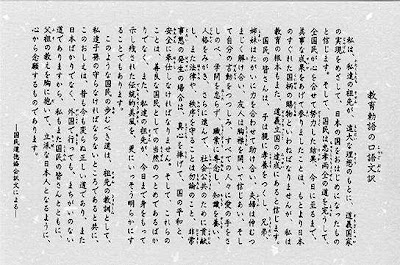 教育勅語の口語文訳
私は、私達の祖先が、遠大な理想のもとに、道義国家
の実現をめざして、日本の国をおはじめになったもの
と信じます。そして、国民は忠孝両全の道を完うして、
全国民が心を合せて努力した結果、今日に至るまで、
美事な成果をあげて参りましたことは、もとより日本
のすぐれた国柄の賜物といわねばなりませんが、私は
教育の根本もまた、道義立国の達成にあると信じます。
国民の皆さんは、子は親に孝養をつくし、兄弟、
姉妹はたがいに力を合わせて助け合い、夫婦は仲むつ
まじく解け合い、友人は胸襟を開いて信じあい、そし
て自分の言動をつつしみ、すべての人々に愛の手をさ
しのべ、学問を怠らず、職業に専念し、知識を養い、
人格をみがき、さらに進んで、社会公共のために貢献
し、また法律や、秩序を守ることは勿論のこと、非常
事態の発生の場合は、真心を捧げて、国の平和と
安全に奉仕しなければなりません。そして、これらの
ことは、善良な国民としての当然のつとめであるばか
りでなく、また、私達の祖先が、今日まで身をもって
示し残された伝統的美風を、更にいっそう明らかにす
ることでもあります。
このような国民の歩むべき道は、祖先の教訓として、
私達子孫の守らなければならないところであると共に、
このおしえは、昔も今も変らぬ正しい道であり、また
日本ばかりでなく、外国で行っても、まちがいのない
道でありますから、私もまた国民の皆さんとともに、
父祖の教えを胸に抱いて、立派な日本人となるように、
心から念願するものであります。
―国民道徳協会訳文による―